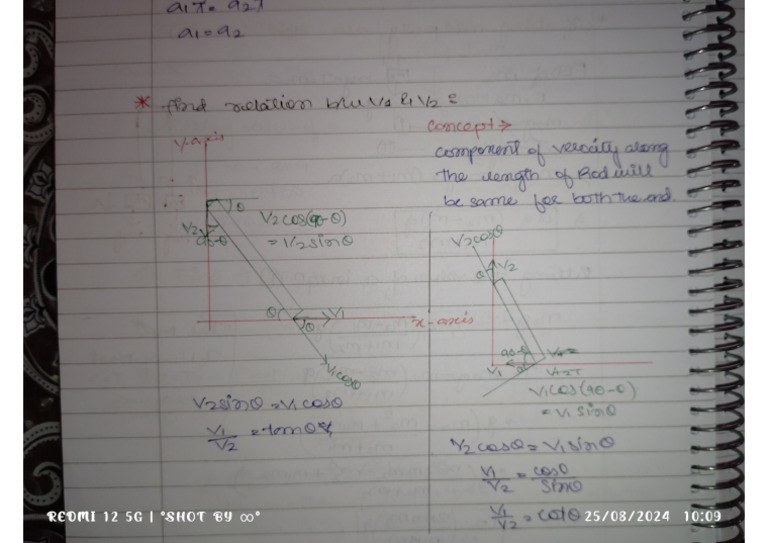 a1x = a2x
a1 = a2
* find relation b/w V1 & V2 =
concept →
component of velocity along
the length of Rod will
be same for both the end.
y-axis
θ
V2
90-θ
V2cos(90-θ)
= V2sinθ
θ
θ
V1
x-axis
V1cosθ
V2sinθ = V1cosθ
V1/V2 = tanθ
V2cosθ
V2
θ
90-θ
V1
V1cos(90-θ)
= V1 sinθ
V2 cosθ = V1 sinθ
V1/V2 = cosθ/sinθ
V1/V2 = cotθ
REDMI 12 5G | °SHOT BY ∞°
25/08/2024 10:09